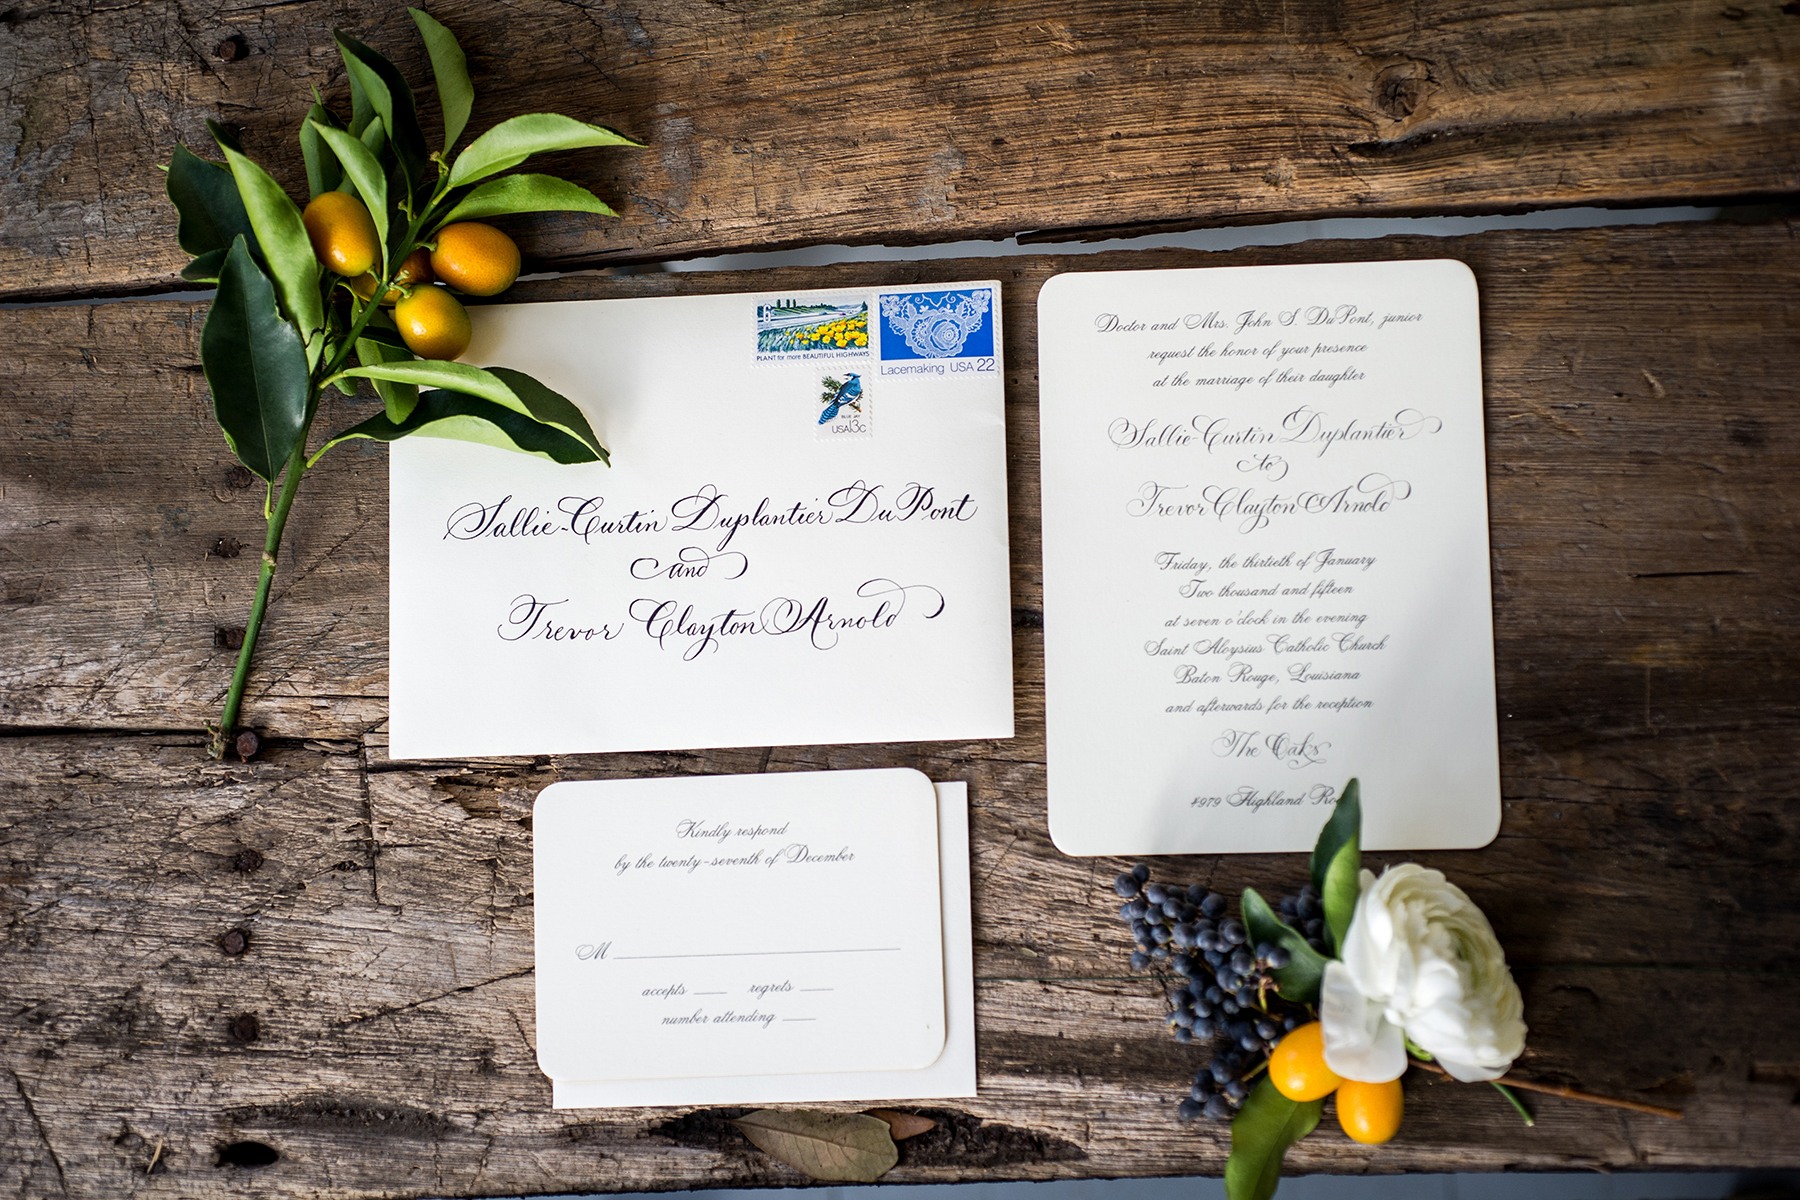 6
PLANT for more BEAUTIFUL HIGHWAYS
Lacemaking USA 22
BLUE JAY
USA 13c
Sallie-Curtin Duplantier DuPont
and
Trevor Clayton Arnold
Doctor and Mrs. John S. DuPont, junior
request the honor of your presence
at the marriage of their daughter
Sallie-Curtin Duplantier
to
Trevor Clayton Arnold
Friday, the thirtieth of January
Two thousand and fifteen
at seven o'clock in the evening
Saint Aloysius Catholic Church
Baton Rouge, Louisiana
and afterwards for the reception
The Oaks
4979 Highland
Kindly respond
by the twenty-seventh of December
M
accepts regrets
number attending